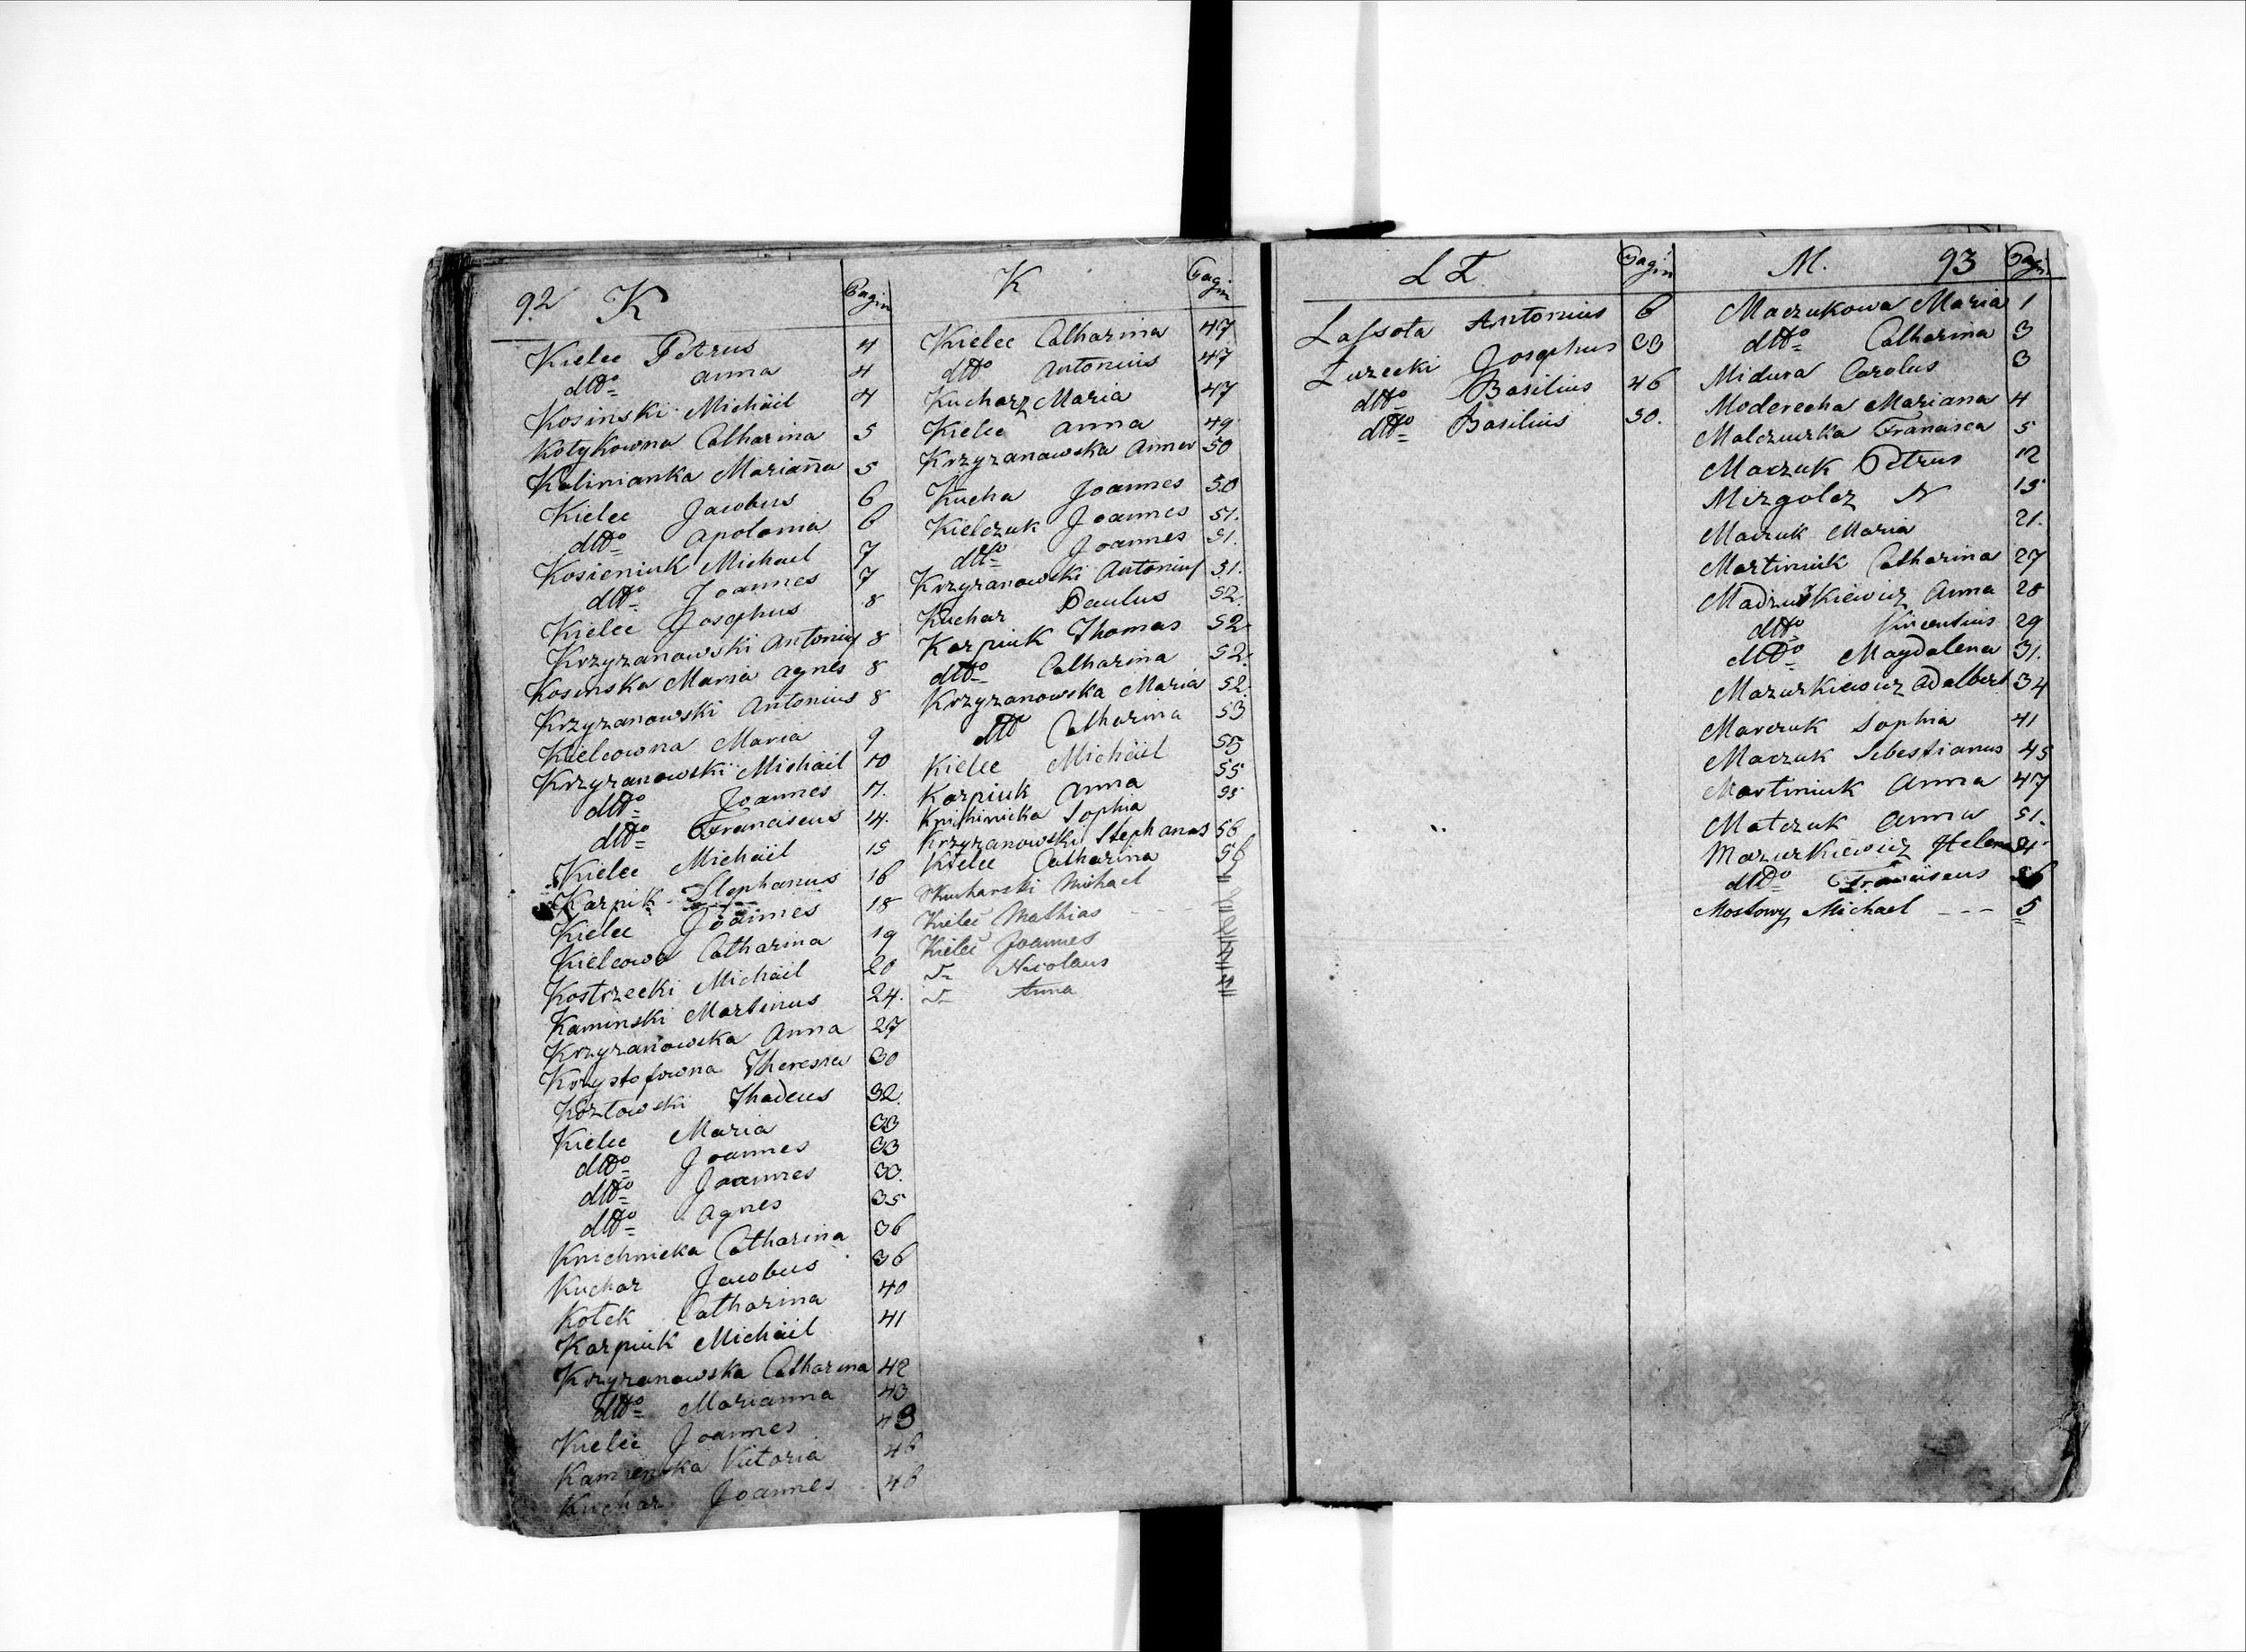 92 K Pagin
Kielec Petrus 4
dtto Anna 4
Kosinski Michäil 4
Kotykowna Catharina 5
Kalinianka Marianna 5
Kielec Jacobus 6
dtto Apolonia 6
Kosieniuk Michael 7
dtto Joannes 7
Kielec Josephus 8
Krzyzanowski Antonius 8
Kosinska Maria Agnes 8
Krzyzanowski Antonius 8
Kielcowna Maria 9
Krzyzanowski Michäil 10
dtto Joannes 11.
dtto Franciscus 14.
Kielec Michäil 15
Karpik Stephanus 16
Kielec Joannes 18
Kielcowa Catharina 19
Kostrzecki Michäil 20
Kaminski Martinus 24.
Krzyzanowska Anna 27
Krzystofowna Theressa 30
Kozłowski Thadeus 32.
Kielec Maria 33
dtto Joannes 33
dtto Joannes 33.
dtto Agnes 35
Knichnicka Catharina 36
Kuchar Jacobus 36
Kotek Catharina 40
Karpiuk Michäil 41
Krzyzanowska Catharina 42
dtto Marianna 43
Kielec Joannes 43
Kamienska Victoria 46
Kuchar Joannes 46
K Pagin
Kielec Catharina 47
dtto Antonius 47
Kucharz Maria 47
Kielec Anna 49
Krzyzanowska Anna 50
Kucha Joannes 50
Kielczuk Joannes 51.
dtto Joannes 51.
Krzyzanowski Antonius 51.
Kuchar Paulus 52.
Karpiuk Thomas 52
dtto Catharina 52.
Krzyzanowska Maria 52.
dtto Catharina 53
Kielec Michäil 55
Karpiuk Anna 55
Knihinicka Sophia 55
Krzyzanowski Stephanus 56
Kielec Catharina 56
Kucharski Michael
Kielec Mathias
Kielec Joannes
Nicolaus
Anna
L Ł Pagin
Lassota Antonius 6
Łuzecki Josephus 33
dtto Basilius 46
dtto Basilius 50.
M. 93 Pagin
Maczukowa Maria 1
dtto Catharina 3
Midura Carolus 3
Moderecha Mariana 4
Malczurka Francisca 5
Maczuk Petrus 12
Mizgolcz N 15
Maczuk Maria 21.
Martiniuk Catharina 27
Madzurkiewicz Anna 28
dtto Vincentius 29
dtto Magdalena 31.
Mazurkiewicz Adalbert 34
Marczuk Sophia 41
Maczuk Sebestianus 45
Martiniuk Anna 47
Matczuk Anna 51.
Mazurkiewicz Helena
dtto Franciscus
Mostowy Michael - - - 5